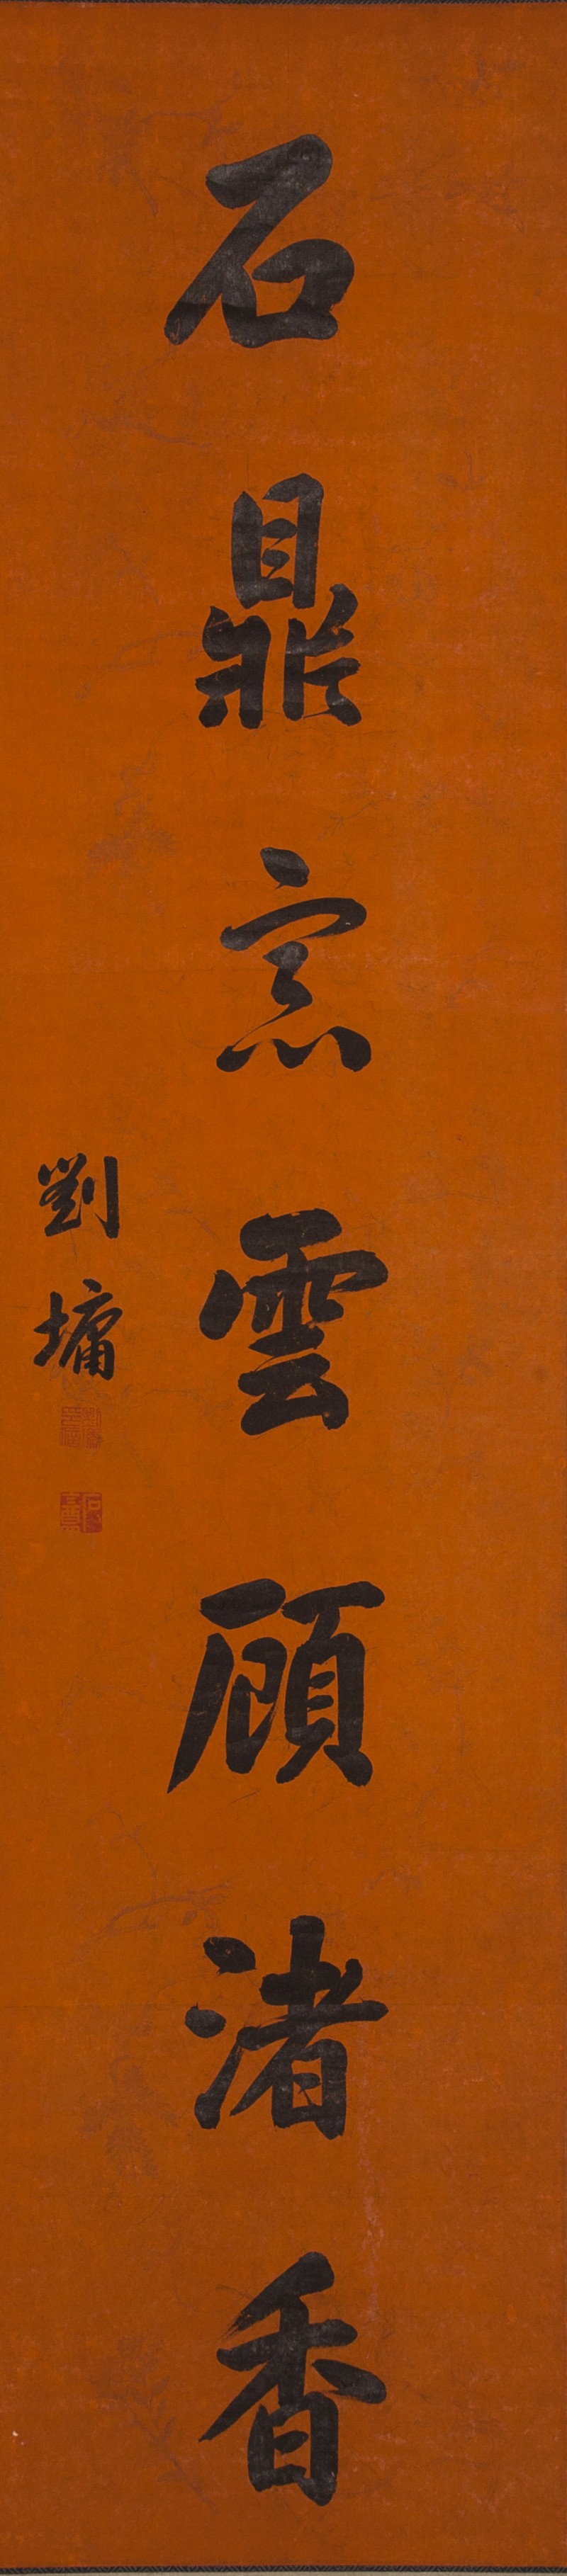 石鼎烹雲顧渚香
劉墉